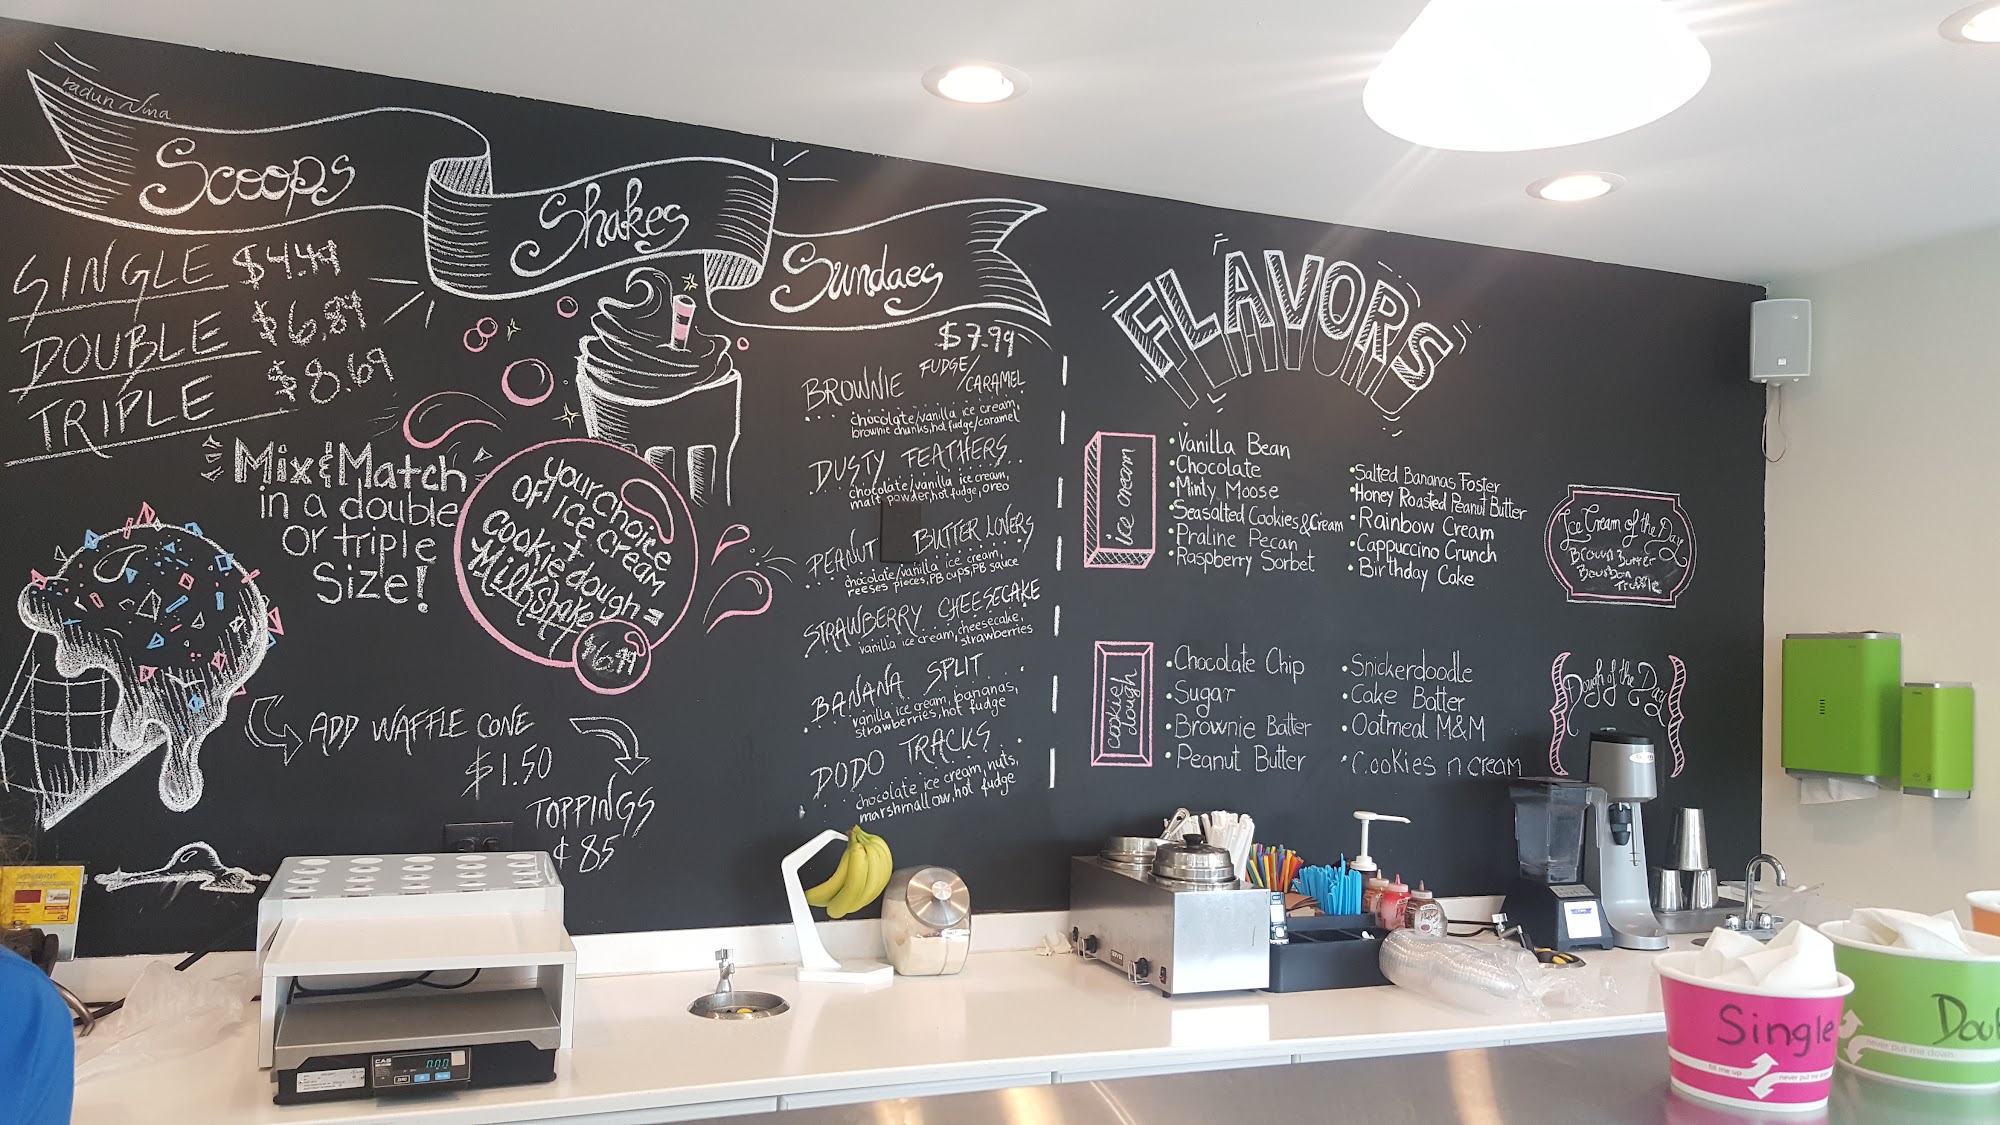 radun Nina
Scoops
Shakes
Sundaes
SINGLE $4.44
DOUBLE $6.89
TRIPLE $8.69
Mix & Match
in a double
or triple
Size!
your choice
of ice cream
+
cookie dough =
Milkshake
ADD WAFFLE CONE
$1.50
TOPPINGS
¢ 85
$7.99
BROWNIE FUDGE/
CARAMEL
chocolate/vanilla ice cream,
brownie chunks, hot fudge/caramel
DUSTY FEATHERS
chocolate/vanilla ice cream,
malt powder, hot fudge, oreo
PEANUT BUTTER LOVERS
chocolate/vanilla ice cream,
reeses pieces, PB cups, PB sauce
STRAWBERRY CHEESECAKE
vanilla ice cream, cheesecake,
strawberries
BANANA SPLIT
vanilla ice cream, bananas,
strawberries, hot fudge
DODO TRACKS
chocolate ice cream, nuts,
marshmallow, hot fudge
FLAVORS
ice cream
• Vanilla Bean
• Chocolate
• Minty Moose
• Seasalted Cookies & Cream
• Praline Pecan
• Raspberry Sorbet
• Salted Bananas Foster
• Honey Roasted Peanut Butter
• Rainbow Cream
• Cappuccino Crunch
• Birthday Cake
Ice Cream of the Day
Brown Butter
Bourbon
Truffle
cookie
dough
• Chocolate Chip
• Sugar
• Brownie Batter
• Peanut Butter
• Snickerdoodle
• Cake Batter
• Oatmeal M&M
• Cookies n cream
Dough of the Day
CAS
0.00
Single
fill me up
never put me down
Dou
never put me down